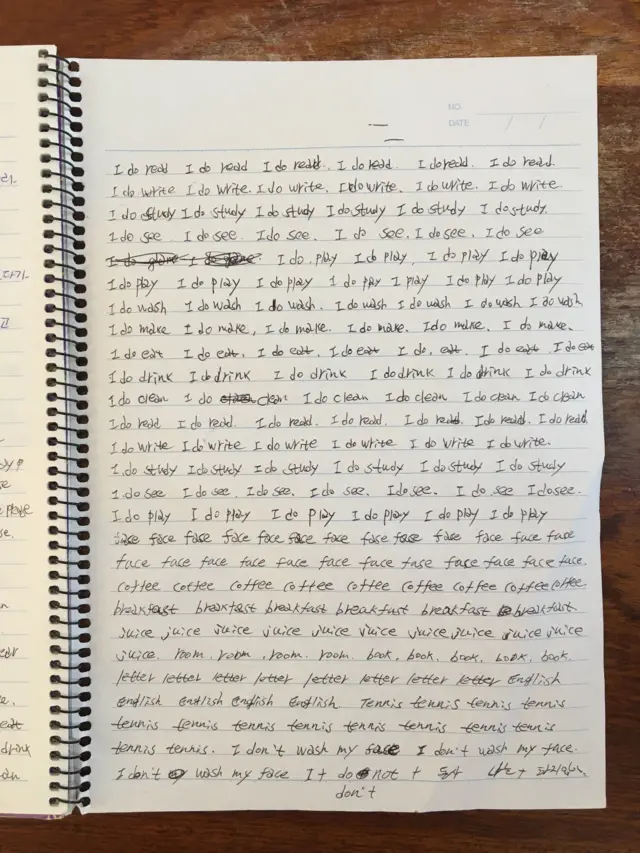 NO.
DATE / /
I do read I do read I do read. I do read. I do read. I do read.
I do write I do write. I do write. I do write. I do write. I do write.
I do study I do study I do study I do study I do study I do study.
I do see. I do see. I do see. I do see. I do see. I do see
I do play I do play. I do play I do play
I do play I do play I do play I do play I play I do play I do play
I do wash I do wash I do wash. I do wash I do wash I do wash I do wash
I do make I do make, I do make. I do make. I do make. I do make.
I do eat I do eat. I do eat. I do eat I do. eat. I do eat I do eat
I do drink I do drink I do drink I do drink I do drink I do drink
I do clean I do clean I do clean I do clean I do clean I do clean
I do read I do read. I do read. I do read. I do read. I do read. I do read.
I do write I do write I do write I do write I do write I do write.
I do study I do study I do study I do study I do study I do study
I do see I do see. I do see. I do see. I do see. I do see I do see.
I do play I do play I do play I do play I do play I do play
face face face face face face face face face face face face
face face face face face face face face face face face face.
coffee coffee coffee coffee coffee coffee coffee coffee coffee
breakfast breakfast breakfast breakfast breakfast breakfast
juice juice juice juice juice juice juice juice juice juice
juice. room. room. room. room. book. book. book. book. book.
letter letter letter letter letter letter letter letter English
English English English English Tennis tennis tennis tennis
tennis tennis tennis tennis tennis tennis tennis tennis
tennis tennis. I don't wash my face I don't wash my face.
I don't wash my face I + do not + 동사
don't